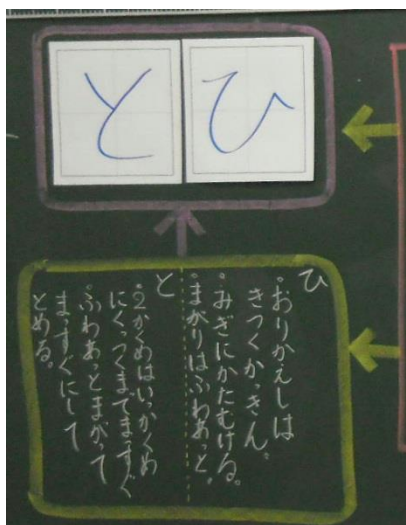 ひと
ひ
・おりかえしは
きつくかっきん。
・みぎにかたむける。
・まがりはふわあっと。
と
・2かくめはいっかくめ
にくっつくまでまっすぐ
・ふわあっとまがって
まっすぐにして
とめる。